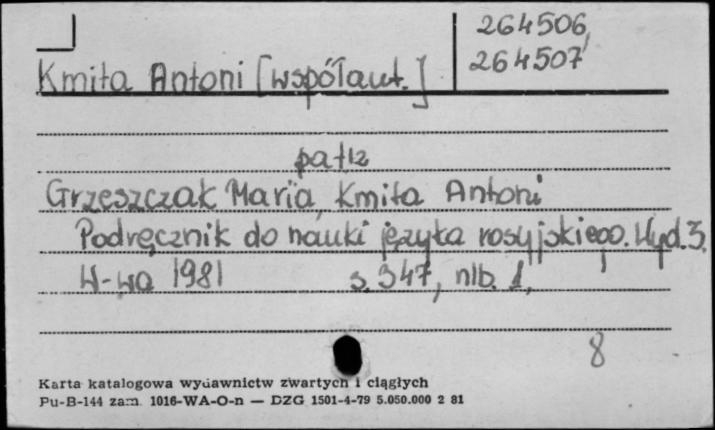 264506,
264507
Kmita Antoni [współaut.]
patrz
Grzeszczak Maria, Kmita Antoni
Podręcznik do nauki języka rosyjskiego. Wyd. 3.
W-wa 1981 s. 347, nlb. 1,
8
Karta katalogowa wydawnictw zwartych i ciągłych
Pu-B-144 zam. 1016-WA-O-n — DZG 1501-4-79 5.050.000 2 81